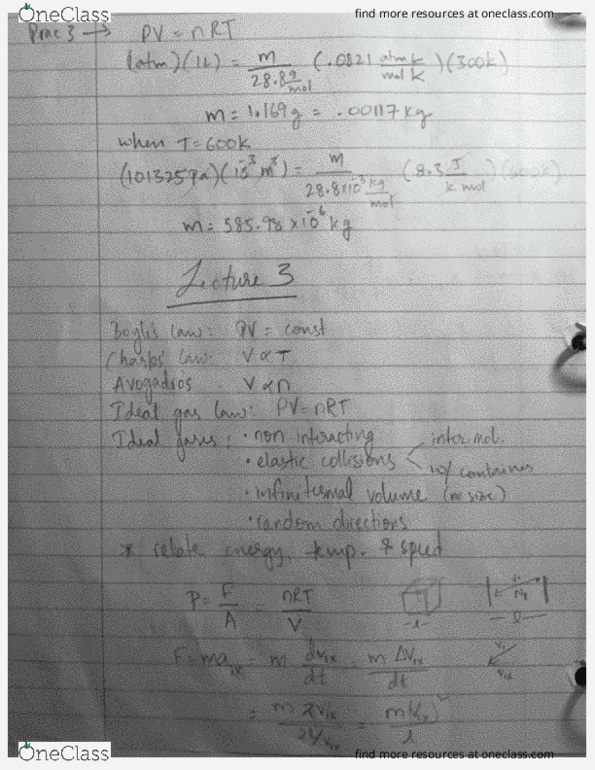 OneClass
find more resources at oneclass.com
Prac 3 → PV = nRT
(atm)(1L) = m / 28.8 g/mol (.0821 atm L / mol K)(300k)
m = 1.169g = .00117 kg
when T = 600k
(101325Pa)(10⁻³ m³) = m / 28.8×10⁻³ kg/mol (8.3 J / k mol)(600k)
m = 585.98 ×10⁻⁶ kg
Lecture 3
Boyle's law: PV = const
Charles' law: V ∝ T
Avogadro's V ∝ n
Ideal gas law: PV = nRT
Ideal gases: • non interacting
• elastic collisions < intermol. w/ container
• infinitesmal volume (no size)
• random directions
* relate energy, temp. & speed
P = F / A = nRT / V
F = ma = m dv₁ₓ / dt = m Δv₁ₓ / dt
OneClass
find more resources at oneclass.com